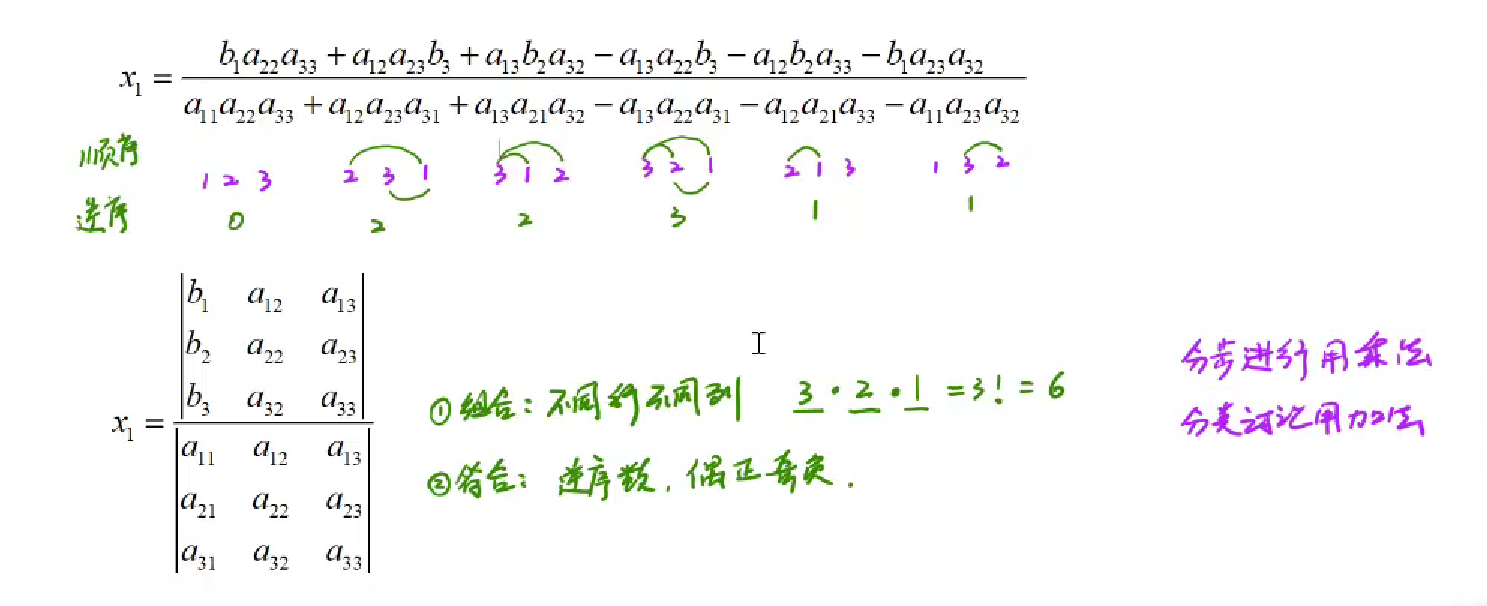 x₁ = (b₁a₂₂a₃₃ + a₁₂a₂₃b₃ + a₁₃b₂a₃₂ − a₁₃a₂₂b₃ − a₁₂b₂a₃₃ − b₁a₂₃a₃₂) / (a₁₁a₂₂a₃₃ + a₁₂a₂₃a₃₁ + a₁₃a₂₁a₃₂ − a₁₃a₂₂a₃₁ − a₁₂a₂₁a₃₃ − a₁₁a₂₃a₃₂)
顺序 1 2 3 2 3 1 3 1 2 3 2 1 2 1 3 1 3 2
逆序 0 2 2 3 1 1
b₁ a₁₂ a₁₃
b₂ a₂₂ a₂₃
b₃ a₃₂ a₃₃
x₁ =
a₁₁ a₁₂ a₁₃
a₂₁ a₂₂ a₂₃
a₃₁ a₃₂ a₃₃
①组合：不同行不同列 3 · 2 · 1 = 3! = 6
②符合：逆序数，偶正奇负．
分步进行用乘法
分类讨论用加法